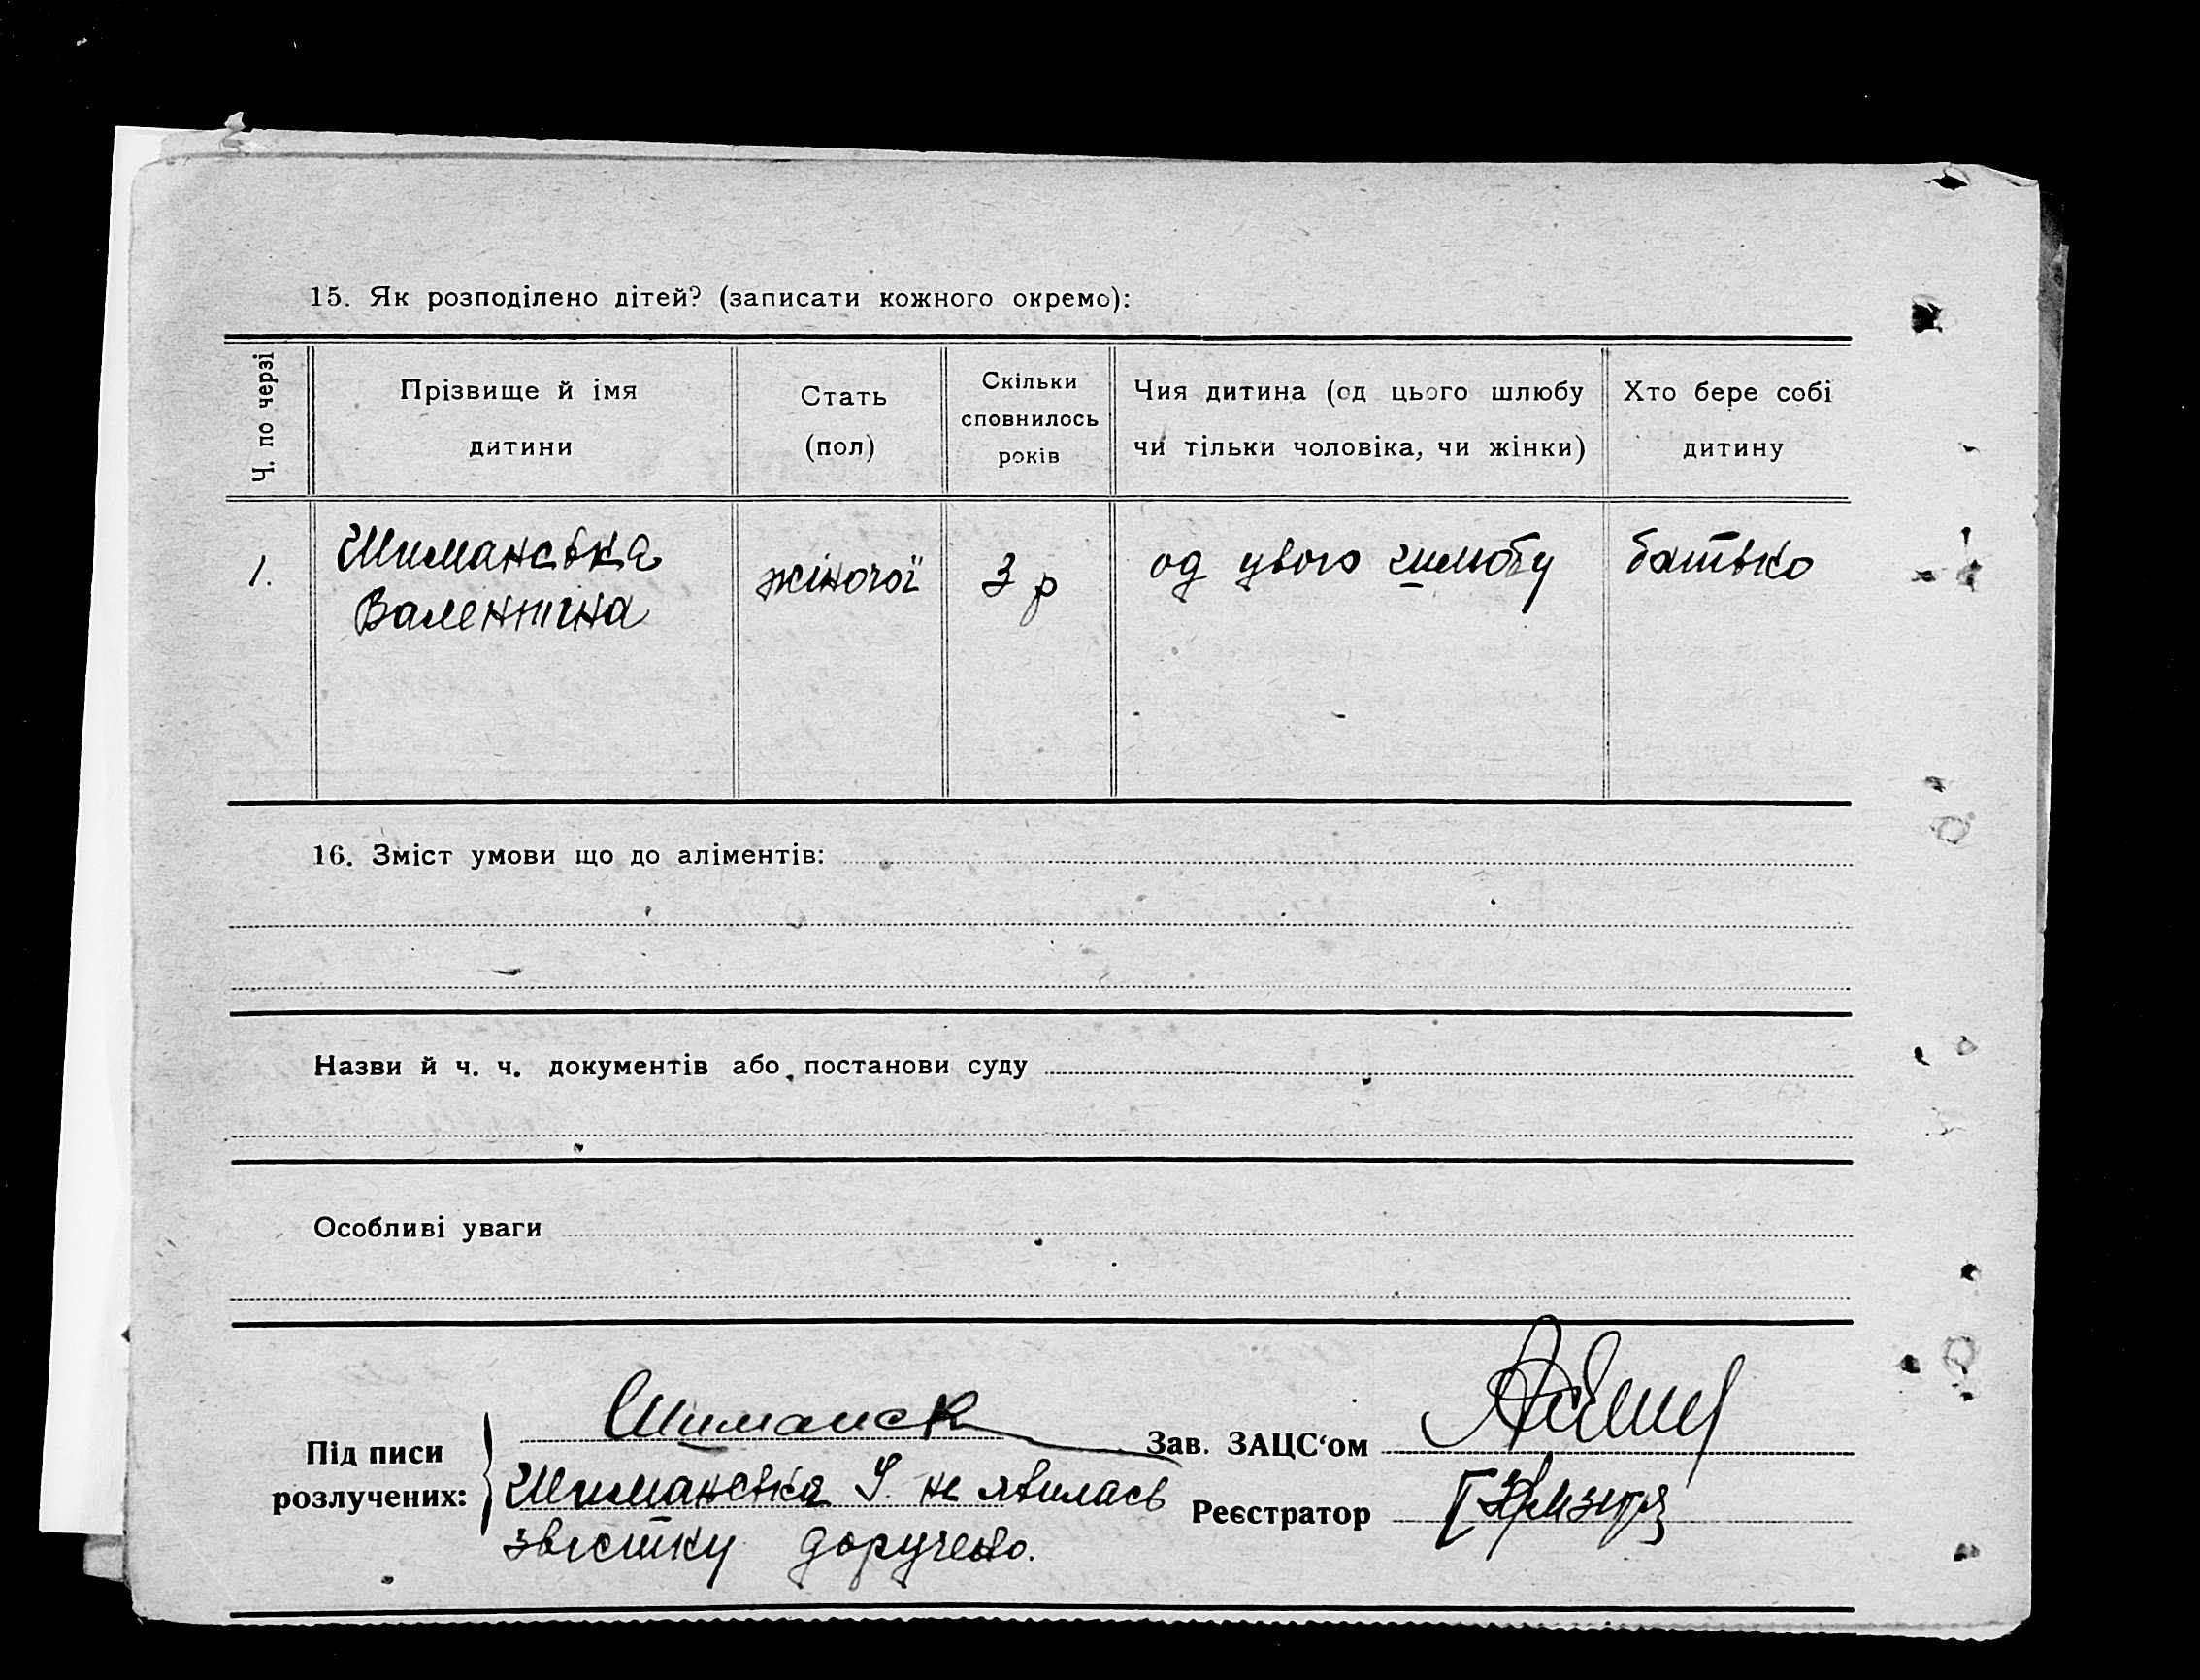 15. Як розподілено дітей? (записати кожного окремо):
Ч. по черзі
Прізвище й імя
дитини
Стать
(пол)
Скільки
сповнилось
років
Чия дитина (од цього шлюбу
чи тільки чоловіка, чи жінки)
Хто бере собі
дитину
1.
Шиманська
Валентіна
жіночої
3 р
од цього шлюбу
батько
16. Зміст умови що до аліментів:
Назви й ч. ч. документів або постанови суду
Особливі уваги
Під писи
розлучених:
Шиманск
Шиманська У. не явилась
звістку доручено.
Зав. ЗАЦС‘ом
Реєстратор